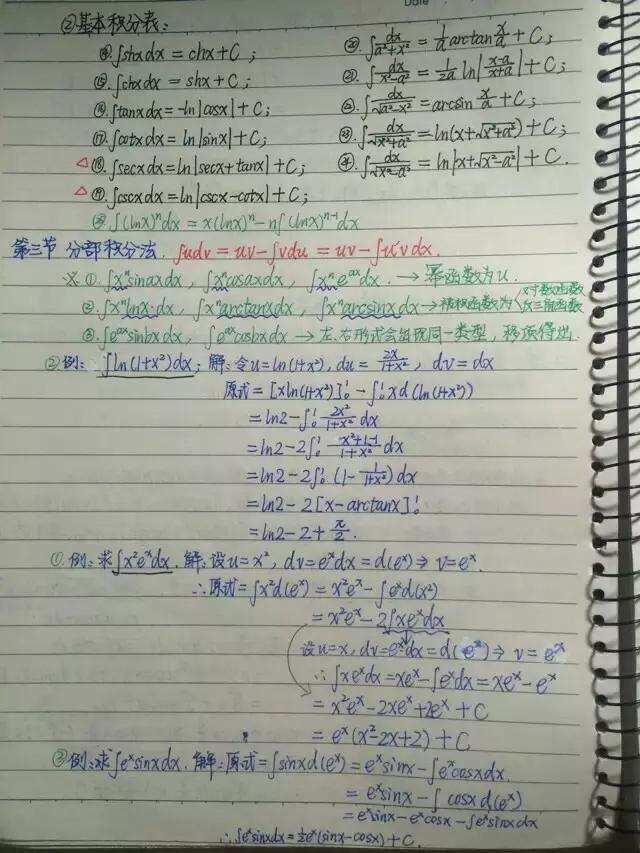 ②基本积分表:
⑭.∫shxdx = chx + C;
⑮.∫chxdx = shx + C;
⑯.∫tanxdx = -ln|cosx| + C;
⑰.∫cotxdx = ln|sinx| + C;
△⑱.∫secxdx = ln|secx+tanx| + C;
△⑲.∫cscxdx = ln|cscx-cotx| + C;
⑳.∫dx/(a²+x²) = 1/a arctan x/a + C;
㉑.∫dx/(x²-a²) = 1/2a ln|(x-a)/(x+a)| + C;
∫dx/√(a²-x²) = arcsin x/a + C;
㉓.∫dx/√(x²+a²) = ln(x+√(x²+a²)) + C;
㉔.∫dx/√(x²-a²) = ln|x+√(x²-a²)| + C.
∫(lnx)ⁿdx = x(lnx)ⁿ - n∫(lnx)ⁿ⁻¹dx
第三节 分部积分法. ∫udv = uv - ∫vdu = uv - ∫u'vdx.
※①.∫xⁿsinaxdx, ∫xⁿcosaxdx, ∫xⁿeᵃˣdx. → 幂函数为u.
②.∫xⁿlnxdx, ∫xⁿarctanxdx, ∫xⁿarcsinxdx → 被积函数为〈对数函数 反三角函数
③.∫eᵃˣsinbxdx, ∫eᵃˣcosbxdx → 左、右形式会出现同一类型, 移项得出.
②例: ∫ln(1+x²)dx; 解: 令u = ln(1+x²), du = 2x/(1+x²), dv = dx
原式 = [xln(1+x²)]₀¹ - ∫₀¹xd(ln(1+x²))
= ln2 - ∫₀¹ 2x²/(1+x²) dx
= ln2 - 2∫₀¹ (x²+1-1)/(1+x²) dx
= ln2 - 2∫₀¹ (1 - 1/(1+x²))dx
= ln2 - 2[x-arctanx]₀¹
= ln2 - 2 + π/2.
①.例: 求∫x²eˣdx. 解: 设u=x², dv=eˣdx=d(eˣ) ⇒ v=eˣ.
∴原式 = ∫x²d(eˣ) = x²eˣ - ∫eˣd(x²)
= x²eˣ - 2∫xeˣdx
设u=x, dv=eˣdx=d(eˣ) ⇒ v=eˣ
∴∫xeˣdx = xeˣ - ∫eˣdx = xeˣ - eˣ
= x²eˣ - 2xeˣ + 2eˣ + C
= eˣ(x²-2x+2) + C
③例: 求∫eˣsinxdx. 解: 原式 = ∫sinxd(eˣ) = eˣsinx - ∫eˣcosxdx.
= eˣsinx - ∫cosxd(eˣ)
= eˣsinx - eˣcosx - ∫eˣsinxdx
∴∫eˣsinxdx = ½eˣ(sinx-cosx) + C.